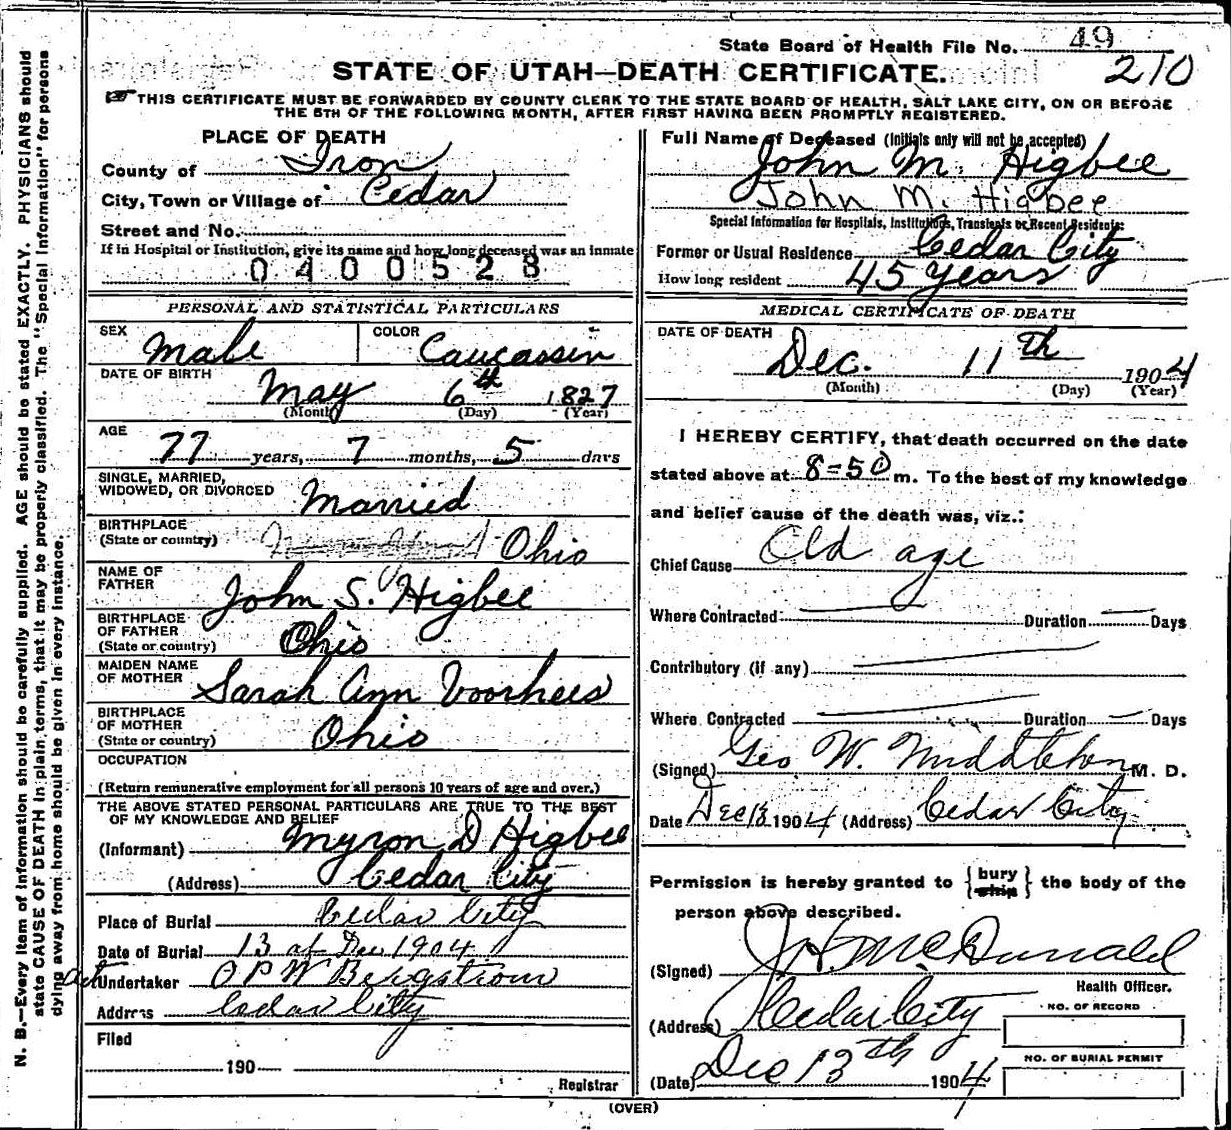 State Board of Health File No. 49
210
STATE OF UTAH—DEATH CERTIFICATE.
THIS CERTIFICATE MUST BE FORWARDED BY COUNTY CLERK TO THE STATE BOARD OF HEALTH, SALT LAKE CITY, ON OR BEFORE
THE 5TH OF THE FOLLOWING MONTH, AFTER FIRST HAVING BEEN PROMPTLY REGISTERED.
N. B.—Every item of information should be carefully supplied. AGE should be stated EXACTLY. PHYSICIANS should
state CAUSE OF DEATH in plain terms, that it may be properly classified. The "Special Information" for persons
dying away from home should be given in every instance.
PLACE OF DEATH
County of Iron
City, Town or Village of Cedar
Street and No.
If in Hospital or Institution, give its name and how long deceased was an inmate
0400528
PERSONAL AND STATISTICAL PARTICULARS
SEX Male COLOR Caucassin
DATE OF BIRTH May 6th 1827
(Month) (Day) (Year)
AGE 77 years, 7 months, 5 days
SINGLE, MARRIED,
WIDOWED, OR DIVORCED Married
BIRTHPLACE
(State or country) Ohio
NAME OF
FATHER John S. Higbee
BIRTHPLACE
OF FATHER
(State or country) Ohio
MAIDEN NAME
OF MOTHER Sarah Ann Voorhees
BIRTHPLACE
OF MOTHER
(State or country) Ohio
OCCUPATION
(Return remunerative employment for all persons 10 years of age and over.)
THE ABOVE STATED PERSONAL PARTICULARS ARE TRUE TO THE BEST
OF MY KNOWLEDGE AND BELIEF
(Informant) Myron D Higbee
(Address) Cedar City
Place of Burial Cedar City
Date of Burial 13 of Dec 1904
act Undertaker O P W Bergstrom
Address Cedar City
Filed
190
Registrar
Full Name of Deceased (Initials only will not be accepted)
John M. Higbee
John M. Higbee
Special Information for Hospitals, Institutions, Transients or Recent Residents:
Former or Usual Residence Cedar City
How long resident 45 years
MEDICAL CERTIFICATE OF DEATH
DATE OF DEATH
Dec. 11th 1904
(Month) (Day) (Year)
I HEREBY CERTIFY, that death occurred on the date
stated above at 8=50 m. To the best of my knowledge
and belief cause of the death was, viz.:
Chief Cause Old age
Where Contracted Duration Days
Contributory (if any)
Where Contracted Duration Days
(Signed) Geo W. Middleton M. D.
Date Dec 13 1904 (Address) Cedar City
Permission is hereby granted to {bury ship} the body of the
person above described.
(Signed) J H McDonald
Health Officer.
(Address) Cedar City
NO. OF RECORD
NO. OF BURIAL PERMIT
(Date) Dec 13th 1904
(OVER)